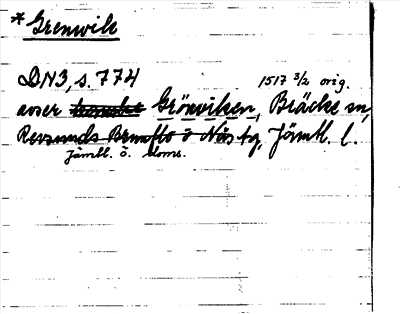 * Grenwik
DN3, s. 774 1517 3/2 orig.
avser Grönviken, Bräcke sn,
Revsunds Brunflo o Näs tg, Jämtl. l.
Jämtl. ö. doms.